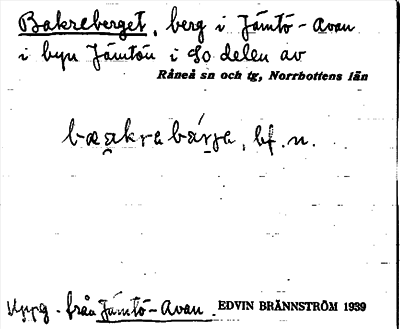 Bakreberget, berg i Jämtö-Avan
i byn Jämtön i SO delen av
Råneå sn och tg, Norrbottens län
bf. n.
Uppg. från Jämtö-Avan. EDVIN BRÄNNSTRÖM 1939